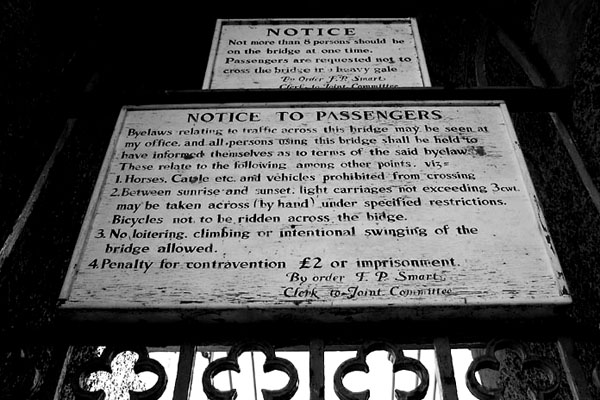 NOTICE
Not more than 8 persons should be
on the bridge at one time.
Passengers are requested not to
cross the bridge in a heavy gale
By Order J.P. Smart
Clerk to Joint Committee
NOTICE TO PASSENGERS
Byelaws relating to traffic across this bridge may be seen at
my office, and all persons using this bridge shall be held to
have informed themselves as to terms of the said byelaw.
These relate to the following among other points, viz=
1. Horses, Cattle etc. and vehicles prohibited from crossing
2. Between sunrise and sunset, light carriages not exceeding 3cwt.
may be taken across (by hand) under specified restrictions.
Bicycles not to be ridden across the bidge.
3. No loitering, climbing or intentional swinging of the
bridge allowed.
4. Penalty for contravention £2 or imprisonment.
By order J. P. Smart
Clerk to Joint Committee